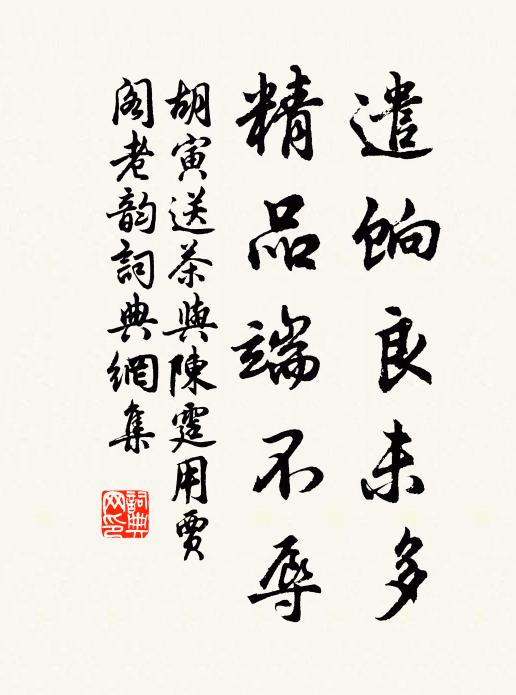 遣饷良未多
精品端不辱
胡寅送茶與陳霆用賈
阁老韵詞典網集
詞典网印